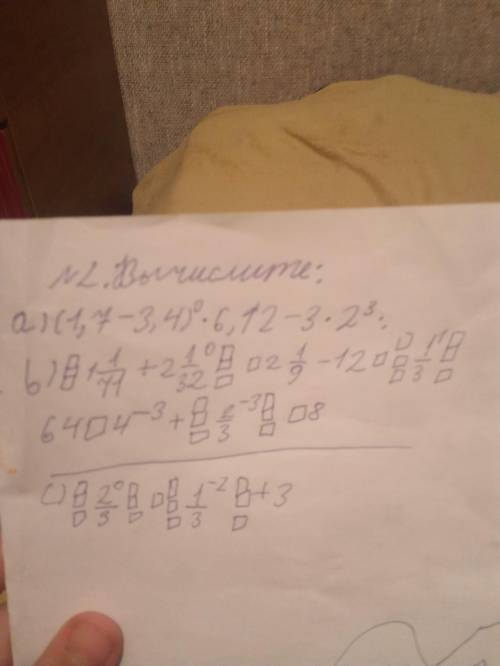 №2. Вычислите:
a) (1,7 - 3,4)⁰ · 6,12 - 3 · 2³;
b) ▯1 1/11 + 2 1/32⁰ ▯ ▯ 2 1/9 - 12 ▯ ▯ 1/3 ▯
64 ▯ 4⁻³ + ▯ 2/3⁻³ ▯ ▯ 8
c) ▯ 2/3⁰ ▯ ▯ ▯ 1/3⁻² ▯ + 3